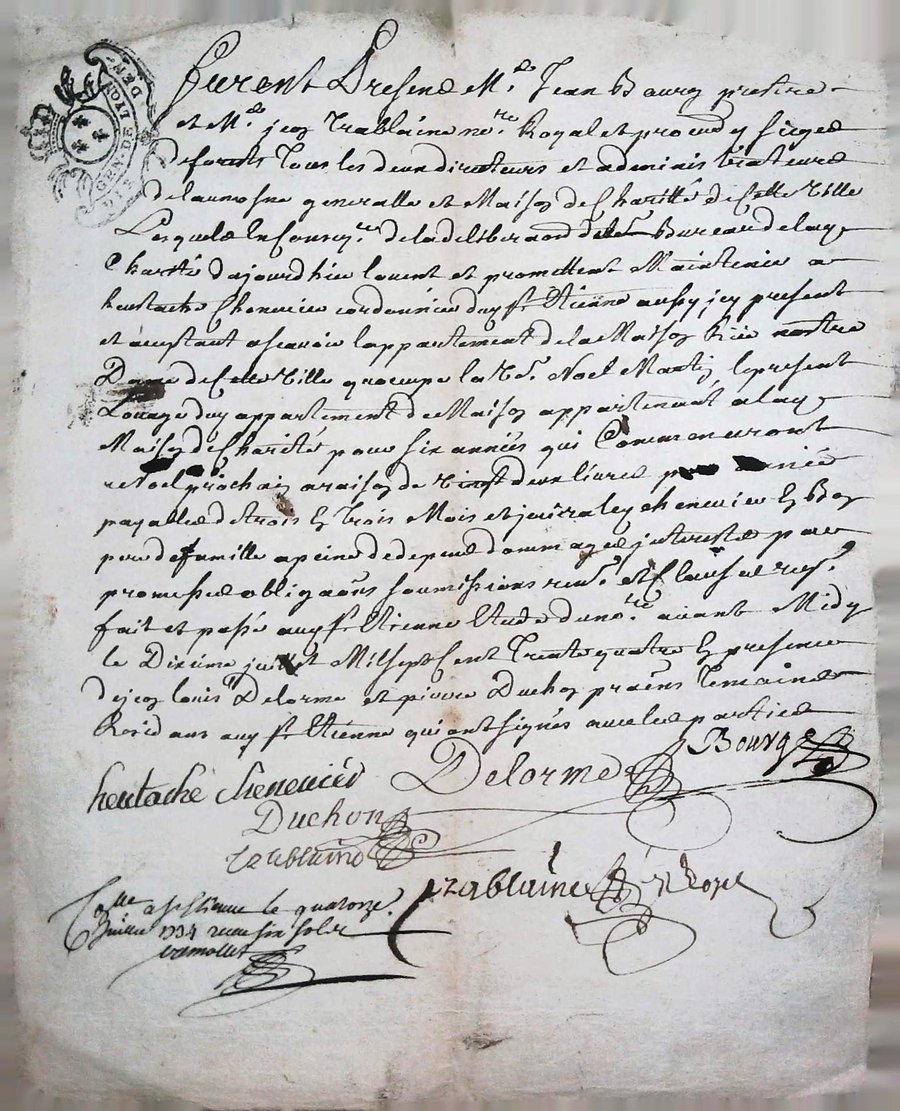 GEN. DE LYON
DEN
furent Presens M.re Jean Bourg prestre
et M.re jcq Trablaine no.re Royal et procu.r du siege
de forests Tous les deux directeurs et administrateurs
de laumosne generalle et Maison de Charitté de Cette Ville
Lesquels En conseq.ce de la deliberaôn du Bureau de lad.
Charitté dajourdhier louent et promettent Maintenir a
heustache Chenevier cordonnier dud st Etienne aussy icy present
et acceptant ascavoir lappartement de la Maison Rüe nostre
Dame de Cette Ville quoccupe la Ve. Noel Martin le present
Louage du appartement de Maison appartenant a lad.
Maison de Charitté pour six années qui Commenceront
a Noel prochain a raison de vingt deux livres par année
payables de trois En trois Mois et jouira led chenevier En Bon
pere de famille a peine de depens dommages interests par
promesses obligaôns soumissions ren.s Et Clauses req.s
fait et passé aud st Etienne Etude du no.re avant Midy
le Dixieme juillet Mil sept Cent Trente quatre En presence
de jcq louis Delorme et pierre Duchon pratiens temoins
Residans aud st Etienne qui ont signés avec les parties
Bourg
heutache chenevier Delorme
Duchon
Trablaine
Trablaine no.re Royal
Con.lle a st Etienne le quatorze
Juillet 1734 receu six sols